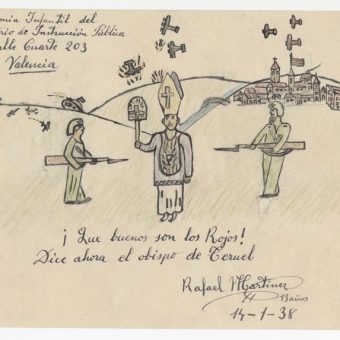 onia Infantil del
rio de Instrucción Pública
alle Cuarte 203
Valencia
¡ Que buenos son los Rojos!
Dice ahora el obispo de Teruel
Rafael Martinez
13 años
14-1-38